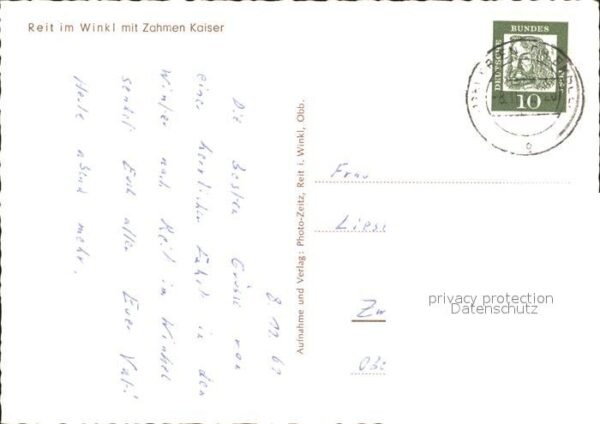 Reit im Winkl mit Zahmen Kaiser
DEUTSCHE
BUNDES
POST
10
8. 12. 62
Die besten Grüße von
einer herrlichen Fahrt in den
Winter nach Reit im Winkel
sendet Euch allen Euer Vati
Heute abend mehr.
Aufnahme und Verlag: Photo-Zeitz, Reit i. Winkl, Obb.
Frau
Liese
Zw
Obe
privacy protection
Datenschutz